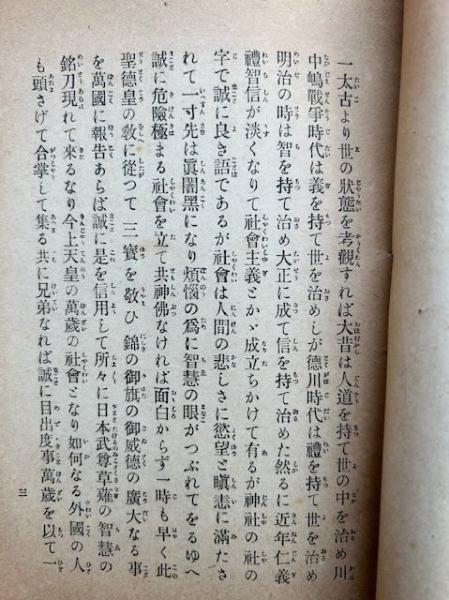 一太古より世の狀態を考觀すれば大昔は人道を持て世の中を治め川
中嶋戰爭時代は義を持て世を治めしが德川時代は禮を持て世を治め
明治の時は智を持て治め大正に成て信を持て治めた然るに近年仁義
禮智信が淡くなりて社會主義とかゞ成立ちかけて有るが神社の社の
字で誠に良き語であるが社會は人間の悲しさに慾望と瞋恚に滿たさ
れて一寸先は眞闇黑になり煩惱の爲に智慧の眼がつぶれてをるゆへ
誠に危險極まる社會を立て共神佛なければ面白からず一時も早く此
聖德皇の敎に從つて三寶を敬ひ錦の御旗の御威德の廣大なる事
を萬國に報告あらば誠に是を信用して所々に日本武尊草薙の智慧の
銘刀現れて來るなり今上天皇の萬歲の社會となり如何なる外國の人
も頭さげて合掌して集る共に兄弟なれば誠に目出度事萬歲を以て一
三